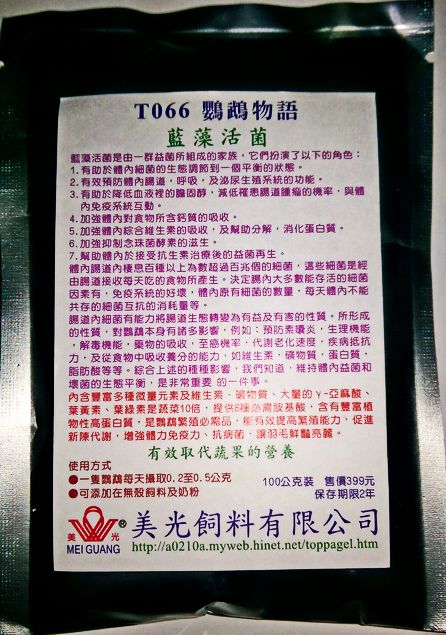 T066 鸚鵡物語
藍藻活菌
藍藻活菌是由一群益菌所組成的家族，它們扮演了以下的角色：
1.有助於體內細菌的生態調節到一個平衡的狀態。
2.有效預防體內腸道，呼吸，及泌尿生殖系統的功能。
3.有助於降低血液裡的膽固醇，減低罹患腸道腫瘤的機率，與體
內免疫系統互動。
4.加強體內對食物所含鈣質的吸收。
5.加強體內綜合維生素的吸收，及幫助分解，消化蛋白質。
6.加強抑制念珠菌酵素的滋生。
7.幫助體內於接受抗生素治療後的益菌再生。
體內腸道內棲息百種以上為數超過百兆個的細菌，這些細菌是經
由腸道接收每天吃的食物所產生。決定腸內大多數能存活的細菌
因素有，免疫系統的好壞，體內原有細菌的數量，每天體內不能
共存的細菌互抗的消耗量等。
腸道內細菌有能力將腸道生態轉變為有益及有害的性質。所形成
的性質，對鸚鵡本身有諸多影響，例如：預防素嚷炎，生理機能
，解毒機能，藥物的吸收，至癌機率，代謝老化速度，疾病抵抗
力，及從食物中吸收養分的能力，如維生素，礦物質，蛋白質，
脂肪酸等等。綜合上述的種種影響，我們知道，維持體內益菌和
壞菌的生態平衡，是非常重要 的一件事。
內含豐富多種微量元素及維生素、礦物質、大量的γ-亞麻酸、
葉黃素、葉綠素是蔬菜10倍，提供8種必需胺基酸，含有豐富植
物性高蛋白質，是鸚鵡繁殖必需品，能有效提高繁殖能力，促進
新陳代謝，增強體力免疫力、抗病菌，讓羽毛鮮豔亮麗。
有效取代蔬果的營養
使用方式
●一隻鸚鵡每天攝取0.2至0.5公克 100公克裝 售價399元
●可添加在無殼飼料及奶粉 保存期限2年
美光 ® 美光飼料有限公司
MEI GUANG http://a0210a.myweb.hinet.net/toppage1.htm